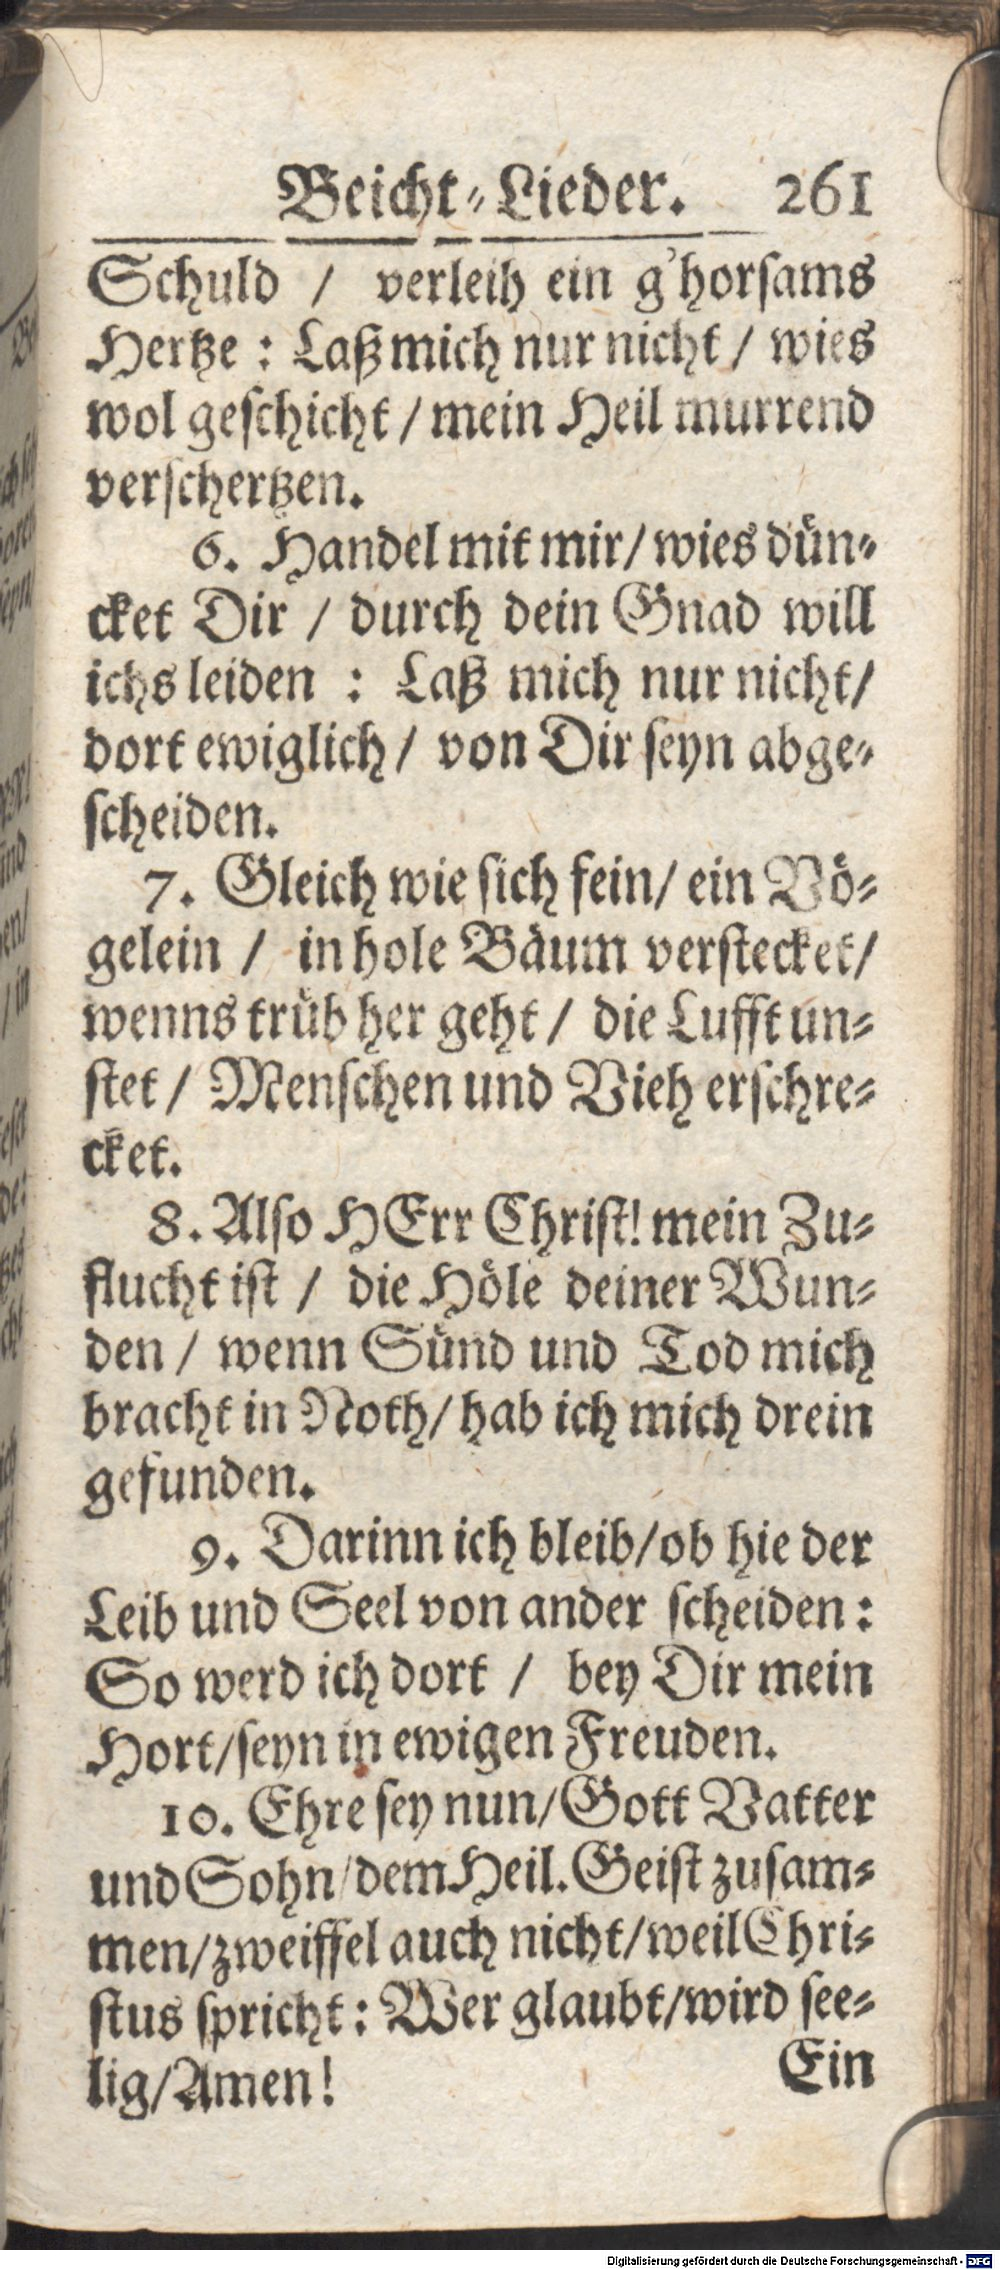 Beicht-Lieder. 261
Schuld / verleih ein g'horsams
Hertze : Laß mich nur nicht / wies
wol geschicht / mein Heil murrend
verschertzen.
6. Handel mit mir/ wies dün-
cket Dir / durch dein Gnad will
ichs leiden : Laß mich nur nicht/
dort ewiglich / von Dir seyn abge-
scheiden.
7. Gleich wie sich fein/ ein Vö-
gelein / in hole Bäum verstecket/
wenns trüb her geht / die Lufft un-
stet / Menschen und Vieh erschre-
cket.
8. Also HErr Christ! mein Zu-
flucht ist / die Höle deiner Wun-
den / wenn Sünd und Tod mich
bracht in Noth/ hab ich mich drein
gefunden.
9. Darinn ich bleib/ob hie der
Leib und Seel von ander scheiden :
So werd ich dort / bey Dir mein
Hort/seyn in ewigen Freuden.
10. Ehre sey nun/Gott Vatter
und Sohn/dem Heil. Geist zusam-
men/zweiffel auch nicht/weil Chri-
stus spricht : Wer glaubt/wird see-
lig/Amen!
Ein
Digitalisierung gefördert durch die Deutsche Forschungsgemeinschaft - DFG